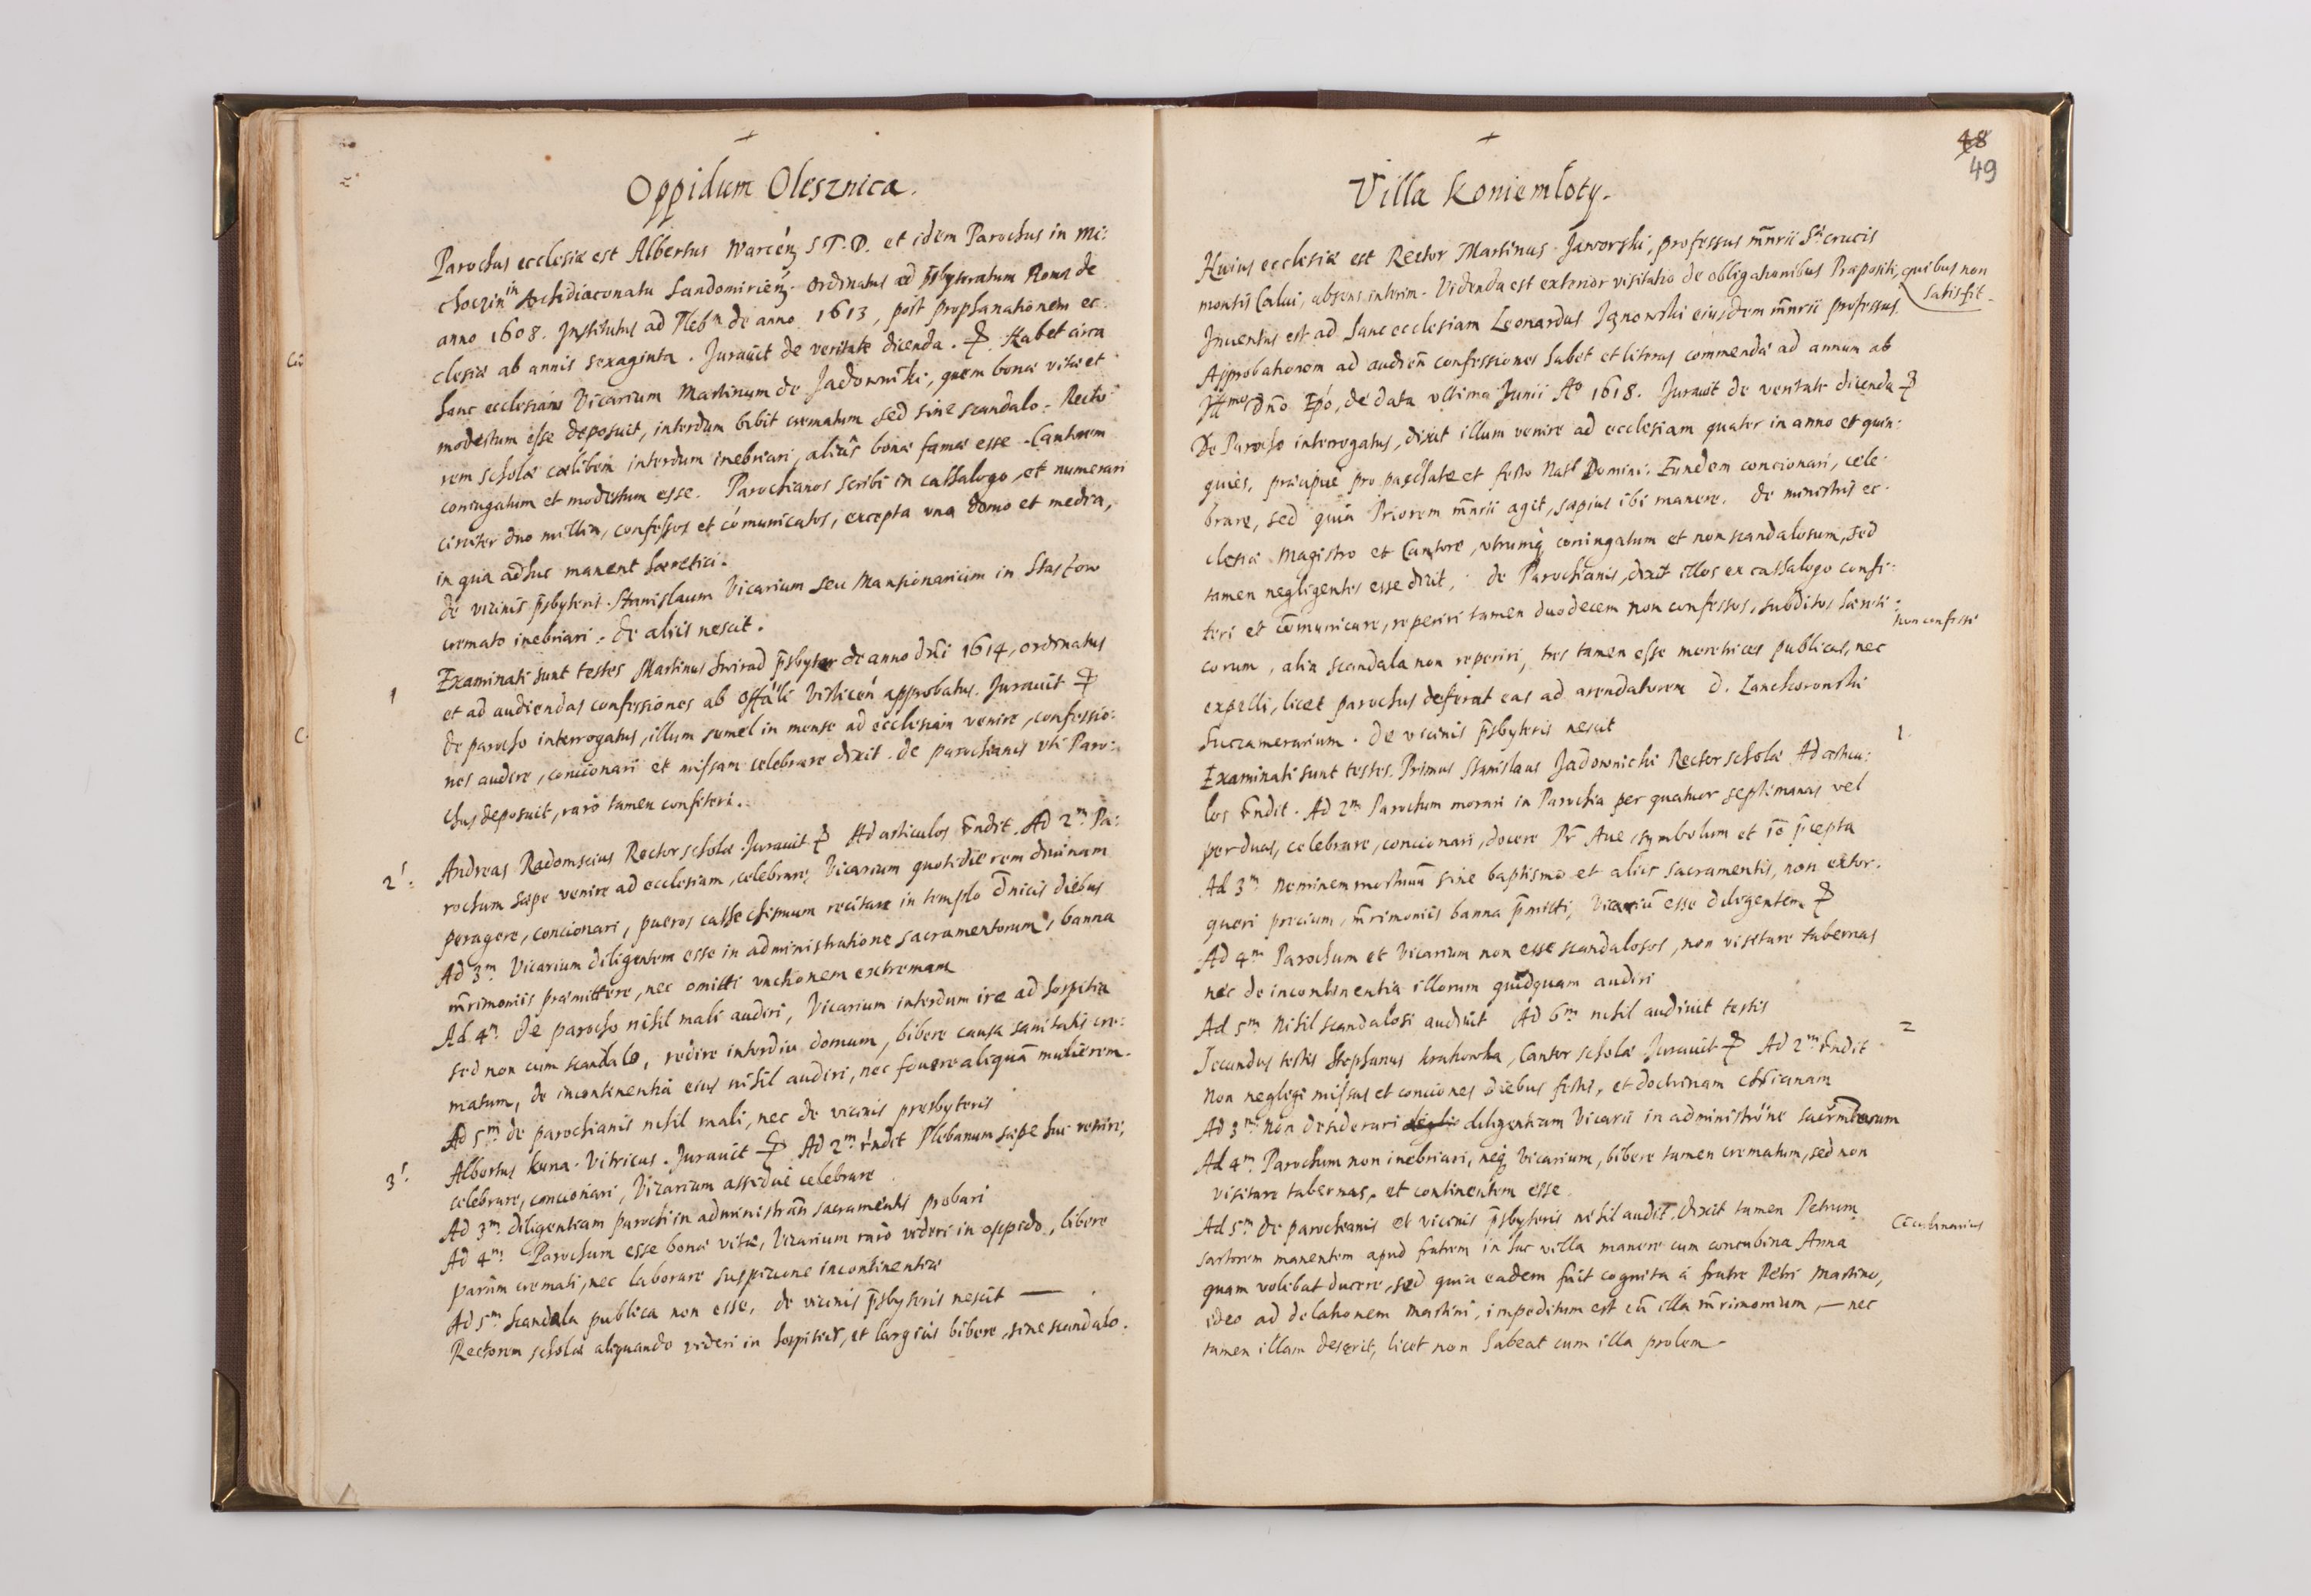 Oppidum Olesznica.
Parochus ecclesiæ est Albertus Warcén̄ S T. D. et idem Parochus in Mi:
choczin in Archidiaconatu Sandomirién̄. Ordinatus ad p̄sbyteratum Roma de
anno 1608. Institutus ad Plebn̄ de anno 1613, post prophanationem ec
clesiæ ab annis sexaginta. Jurauit de veritate dicenda. Habet circa
hanc ecclesiam Vicarium Martinum de Jadowniki, quem bonæ vitæ et
modestum esse deposuit, interdum bibit crematum sed sine scandalo. Recto
rem scholæ cœlibem interdum inebriari, aliâs bonæ famæ esse. Cantorem
coniugatum et modestum esse. Parochianos scribi in cathalogo, et numerari
circiter duo millia, confessos et cōmunicatos, excepta vna domo et media,
in qua adhuc manent hæretici.
de vicinis p̄sbyteris. Stanislaum Vicarium seu Mansionarium in Stastow
cremato inebriari. de aliis nescit.
1 Examinati sunt testes Martinus Swirad p̄sbyter de anno dn̄i 1614, ordinatus
et ad audiendas confessiones ab Offāli Visliceń approbatus. Jurauit
de parocho interrogatus, illum semel in mense ad ecclesiam venire, confessio:
nes audire, concionari et missam celebrare dixit. de parochianis vti Paro:
chus deposuit, rarò tamen confiteri.
2 Andreas Radomscius Rector scholæ. Jurauit Ad articulos r̄ndit. Ad 2m Pa:
rochum sæpe venire ad ecclesiam, celebrare, Vicarium quotidie rem diuinam
peragere, concionari, pueros cathechismum recitare in templo d̄nicis diebus
Ad 3m Vicarium diligentem esse in administratione sacramentorum, banna
m̄rimoniis præmittere, nec omitti vnctionem extremam
Ad 4m De parocho nihil mali audiri, Vicarium interdum ire ad hospitia
sed non cum scandalo, redire interdiu domum, bibere causa sanitatis cre:
matum, de incontinentia eius nihil audiri, nec fouere aliquā mulierem.
Ad 5m de parochianis nihil mali, nec de vicinis presbyteris
3 Albertus Kuna. Vitricus. Jurauit Ad 2m r̄ndit Plebanum sæpe huc venire,
celebrare, concionari, Vicarium assiduè celebrare
Ad 3m diligentiam parochi in administrān̄ sacramentis probari
Ad 4m Parochum esse bonæ vitæ, Vicarium rarò videri in oppido, bibere
parùm cremati, nec laborare suspicione incontinentiæ
Ad 5m Scandala publica non esse, de vicinis p̄sbyteris nescit —
Rectorem scholæ aliquando videri in hospitiis, et largius bibere, sine scandalo.
48
49
Villa Koniemloty.
Huius ecclesiæ est Rector Martinus Jaworski, professus mn̄rii Stæ crucis
montis Calui, absens interim. Videnda est exterior visitatio de obligationibus Præpositi, quibus non
satis fit
Inuentus est ad hanc ecclesiam Leonardus eiusdem mn̄rii professus.
Approbationem ad audien̄ confessiones habet et literas commendæ ad annum ab
Illmo Dn̄o Ep̄o, de data vltima Junii Ao 1618. Jurauit de veritate dicenda
De Parocho interrogatus, dixit illum venire ad ecclesiam quater in anno et quin:
quies, præcipuè pro paschate et festo Natl Domini. Eundem concionari, cele:
brare, sed quia Priorem mn̄rii agit, sæpius ibi manere. de ministris ec:
clesiæ Magistro et Cantore, vtrumq coniugatum et non scandalosum, sed
tamen negligentes esse dixit, de Parochianis, dixit illos ex cathalogo confi:
teri et cōmunicare, reperiri tamen duodecem non confessos, subditos hæreti:
non confessi
corum, alia scandala non reperiri, tres tamen esse meretrices publicas, nec
expelli, licet parochus deferat eas ad arendatorem D. Lanckoronski
Succamerarium. De vicinis p̄sbyteris nescit
1. Examinati sunt testes. Primus Stanislaus Jadownicki Rector scholæ Ad articu:
los r̄ndit. Ad 2m Parochum morari in Parochia per quatuor septimanas vel
per duas, celebrare, concionari, docere Pr̄ Aue, symbolum et 10 p̄cepta
Ad 3m Neminem mortuum sine baptismo et aliis sacramentis, non extor:
queri precium, m̄rimoniis banna p̄mitti, Vicariū esse diligentem
Ad 4m Parochum et Vicarium non esse scandalosos, non visitare tabernas
nec de incontinentia illorum quidquam audiri
Ad 5m Nihil scandalosi audiuit Ad 6m nihil audiuit testis
2 Secundus testis Stephanus Krakowka, Cantor scholæ Jurauit Ad 2m r̄ndit
Non negligi missas et conciones diebus festis, et doctrinam chr̄ianam
Ad 3m Non desiderari diligentiam Vicarii in administrōne sacrm̄torum
Ad 4m Parochum non inebriari, neq Vicarium, bibere tamen crematum, sed non
visitare tabernas, et continentem esse
Ad 5m de parochianis et vicinis p̄sbyteris nihil audit. dixit tamen Petrum
Cōcubinarius
sartorem manentem apud fratrem in hac villa manere cum concubina Anna
quam volebat ducere, sed quia eadem fuit cognita à fratre Petri Martino,
ideo ad delationem Martini, impeditum est cū illa m̄rimonium, — nec
tamen illam deserit, licet non habeat cum illa prolem.